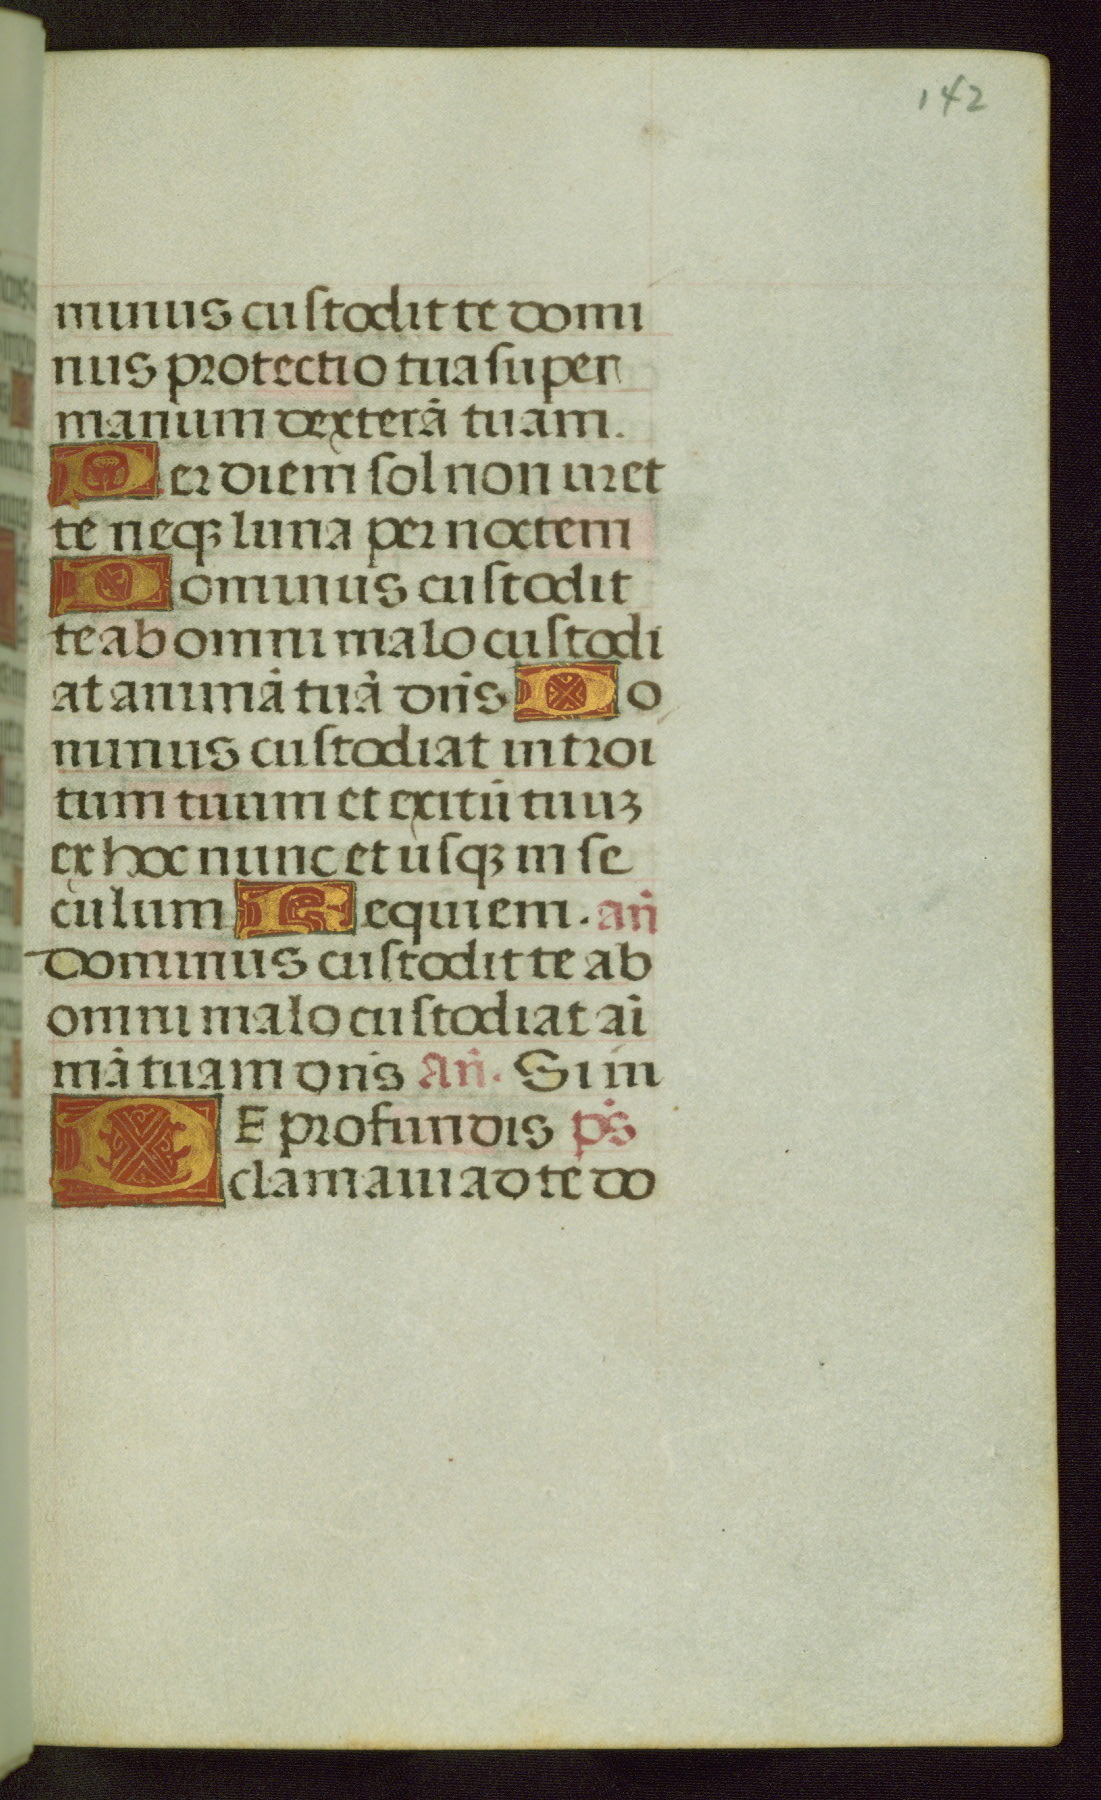 142
minus custodit te domi
nus protectio tua super
manum dexterā tuam.
Per diem sol non uret
te neqꝫ luna per noctem
Dominus custodit
te ab omni malo custodi
at animā tuā dn̄s Do
minus custodiat introi
tum tuum et exitū tuuꝫ
ex hoc nunc et usqꝫ in se
culum Requiem. an̄
Dominus custodit te ab
omni malo custodiat ai
mā tuam dn̄s An̄. Si in
DE profundis ps̄
clamaui ad te do